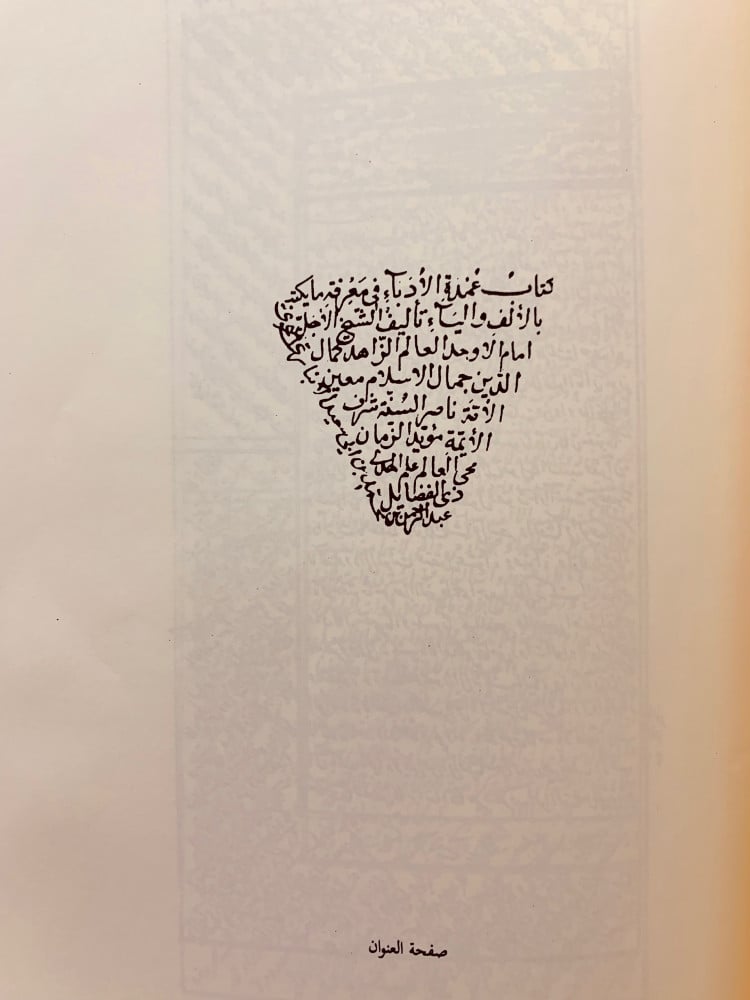 كتابُ عُمْدةِ الأُدَبآءِ في مَعْرِفةِ ما يكتب
بالألفِ واليَآءِ تأليف الشيخ الأجلّ
امام الاوحد العالم الزّاهد كمال
الدّين جمال الاسلام معين
ناصر السُنّة شرف
الأئمّة مؤيّد الزّمان
محي العالم علم الهدى
ذي الفضايل
عبد الرحمن بن محمد بن ابي سعيد الانباري
صفحة العنوان